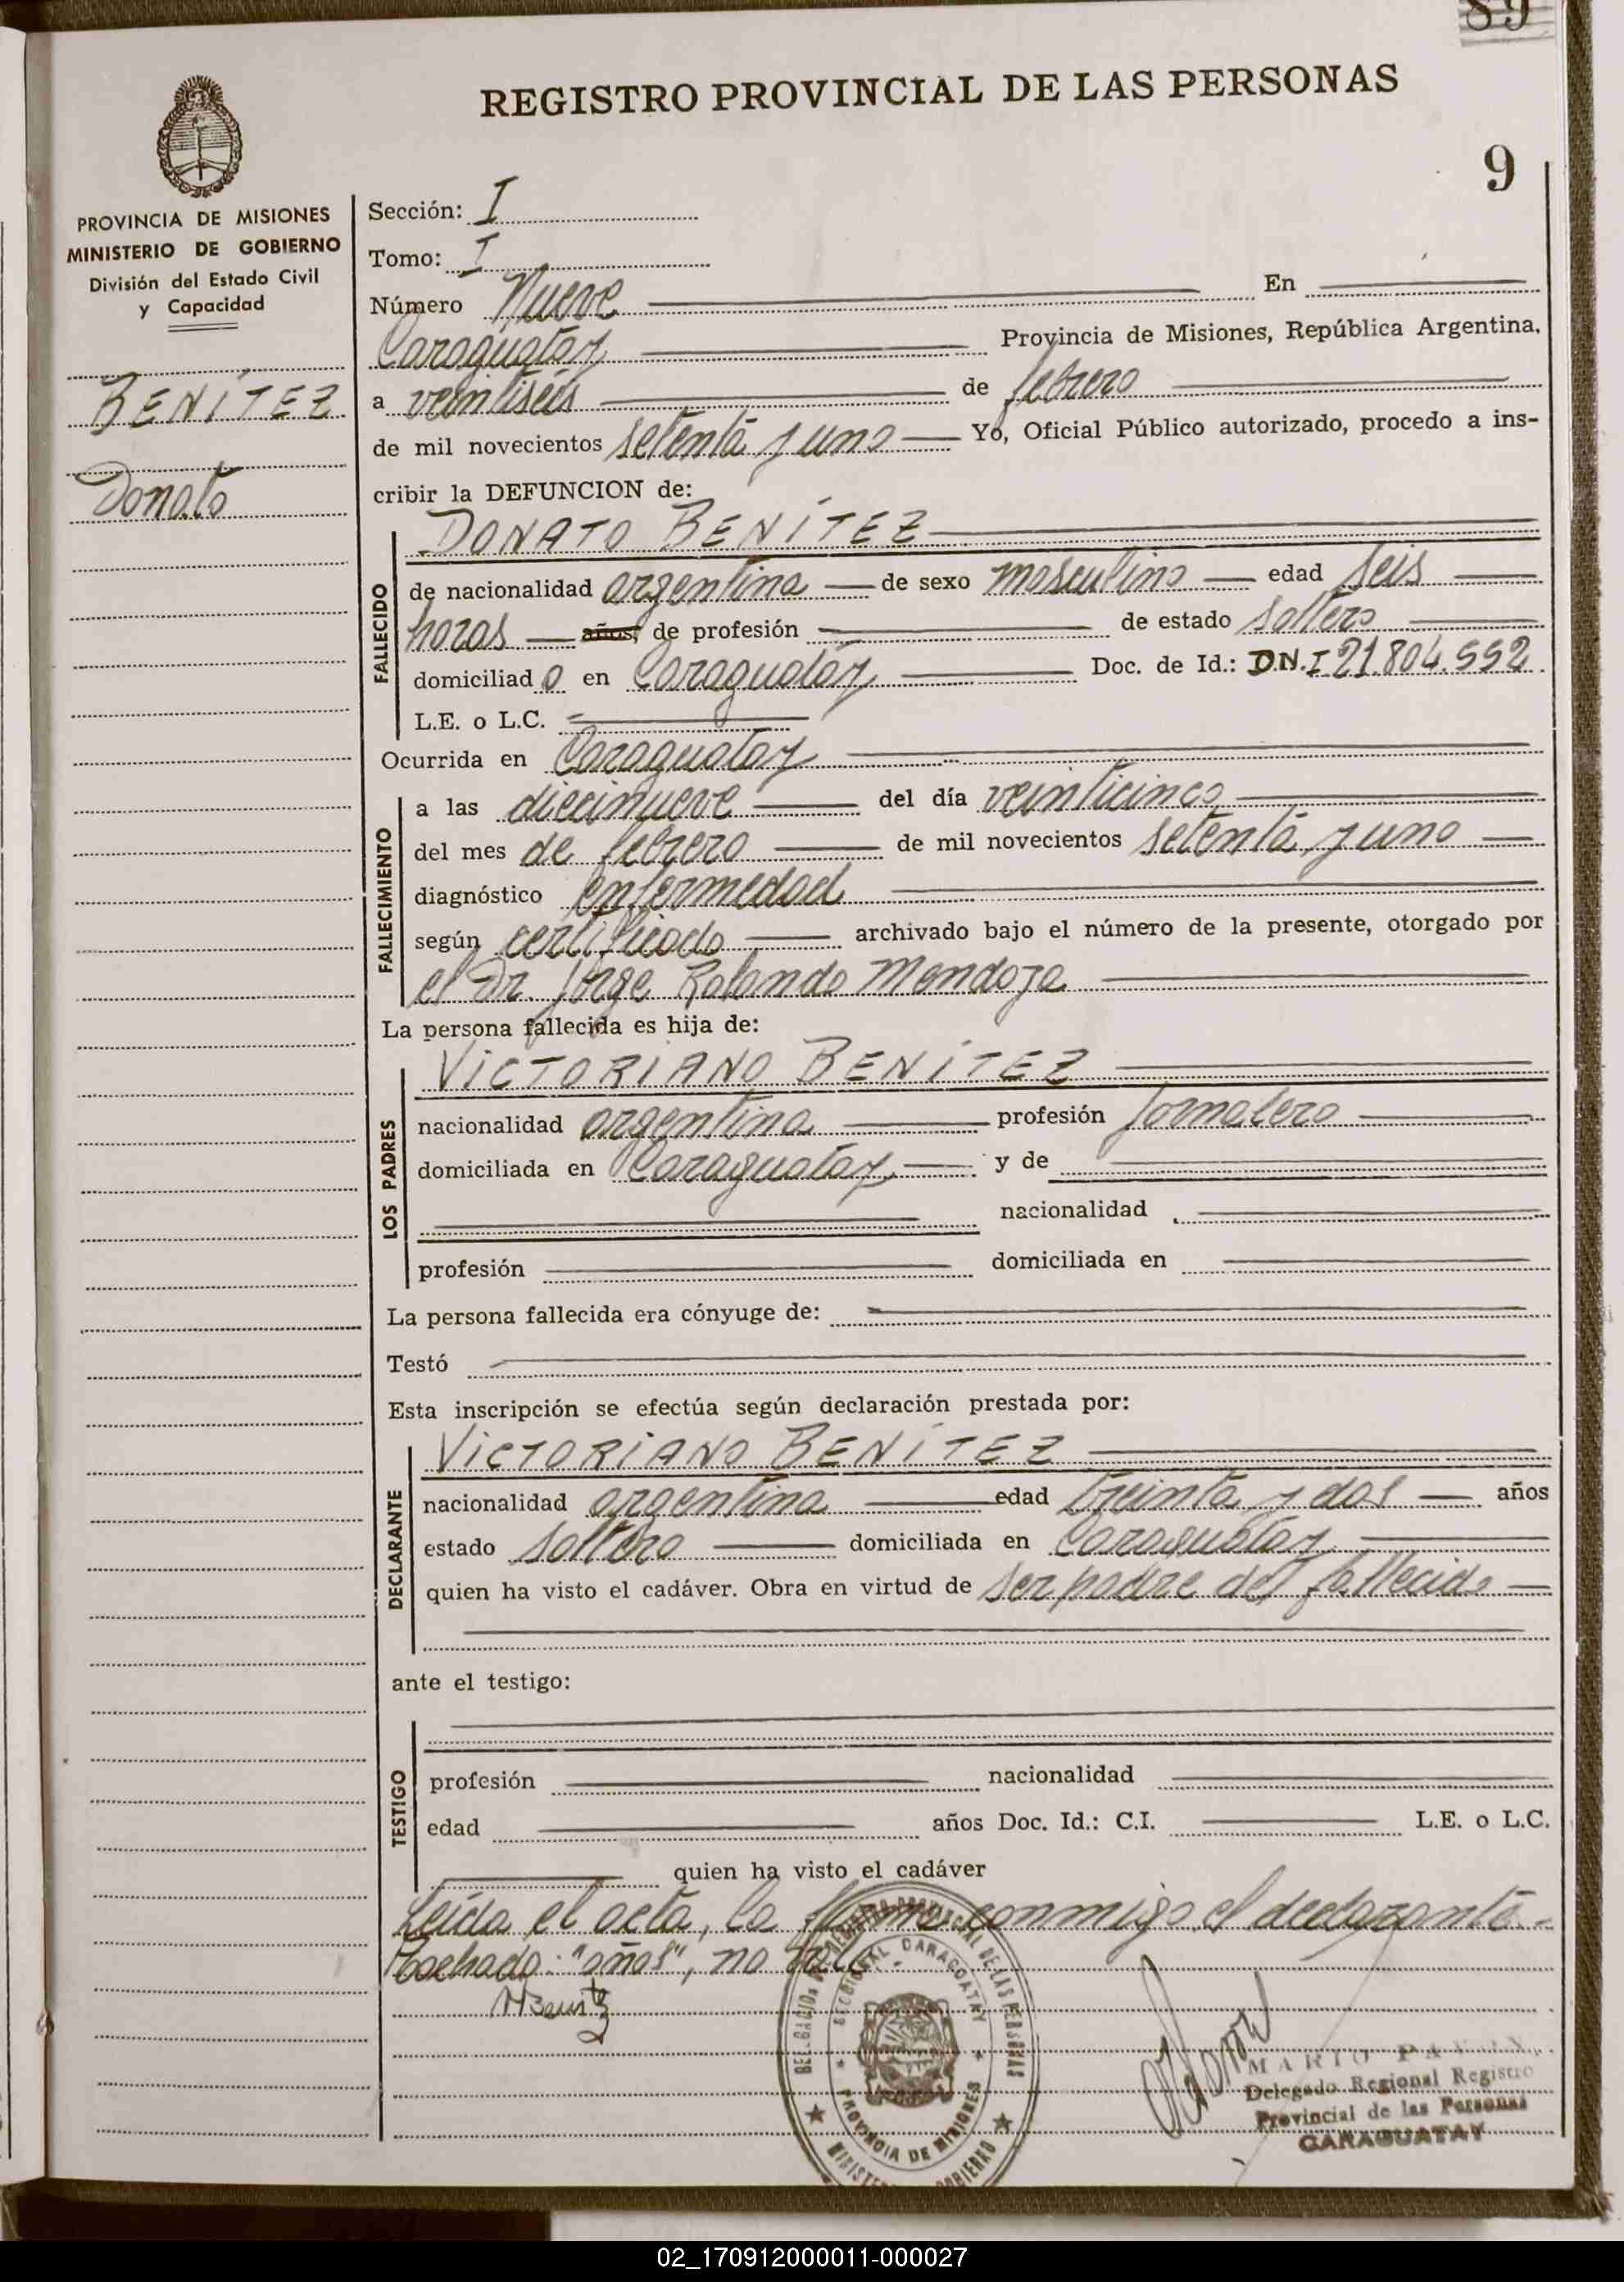 89
REGISTRO PROVINCIAL DE LAS PERSONAS
9
PROVINCIA DE MISIONES
MINISTERIO DE GOBIERNO
División del Estado Civil
y Capacidad
BENÍTEZ
Donato
Sección: I
Tomo: I
Número Nueve En
Caraguatay Provincia de Misiones, República Argentina,
a veintiséis de febrero
de mil novecientos setenta y uno Yo, Oficial Público autorizado, procedo a ins-
cribir la DEFUNCION de:
DONATO BENÍTEZ
FALLECIDO
de nacionalidad argentina de sexo masculino edad seis
horas años, de profesión de estado soltero
domiciliado en Caraguatay Doc. de Id.: D.N.I 21.804.552
L.E. o L.C.
Ocurrida en Caraguatay
FALLECIMIENTO
a las diecinueve del día veinticinco
del mes de febrero de mil novecientos setenta y uno
diagnóstico enfermedad
según certificado archivado bajo el número de la presente, otorgado por
el Dr. Jorge Rolando Mendoza
La persona fallecida es hija de:
LOS PADRES
VICTORIANO BENÍTEZ
nacionalidad argentina profesión Jornalero
domiciliada en Caraguatay y de
nacionalidad
profesión domiciliada en
La persona fallecida era cónyuge de:
Testó
Esta inscripción se efectúa según declaración prestada por:
DECLARANTE
VICTORIANO BENÍTEZ
nacionalidad argentina edad treinta y dos años
estado soltero domiciliada en Caraguatay
quien ha visto el cadáver. Obra en virtud de ser padre del fallecido
ante el testigo:
TESTIGO
profesión nacionalidad
edad años Doc. Id.: C.I. L.E. o L.C.
quien ha visto el cadáver
Leída el acta, la firma conmigo el declarante.-
Tachado: "años", no vale.
SECCIONAL CARAGUATAY
PROVINCIA DE MISIONES
Delegado Regional Registro
Provincial de las Personas
CARAGUATAY
02_170912000011-000027